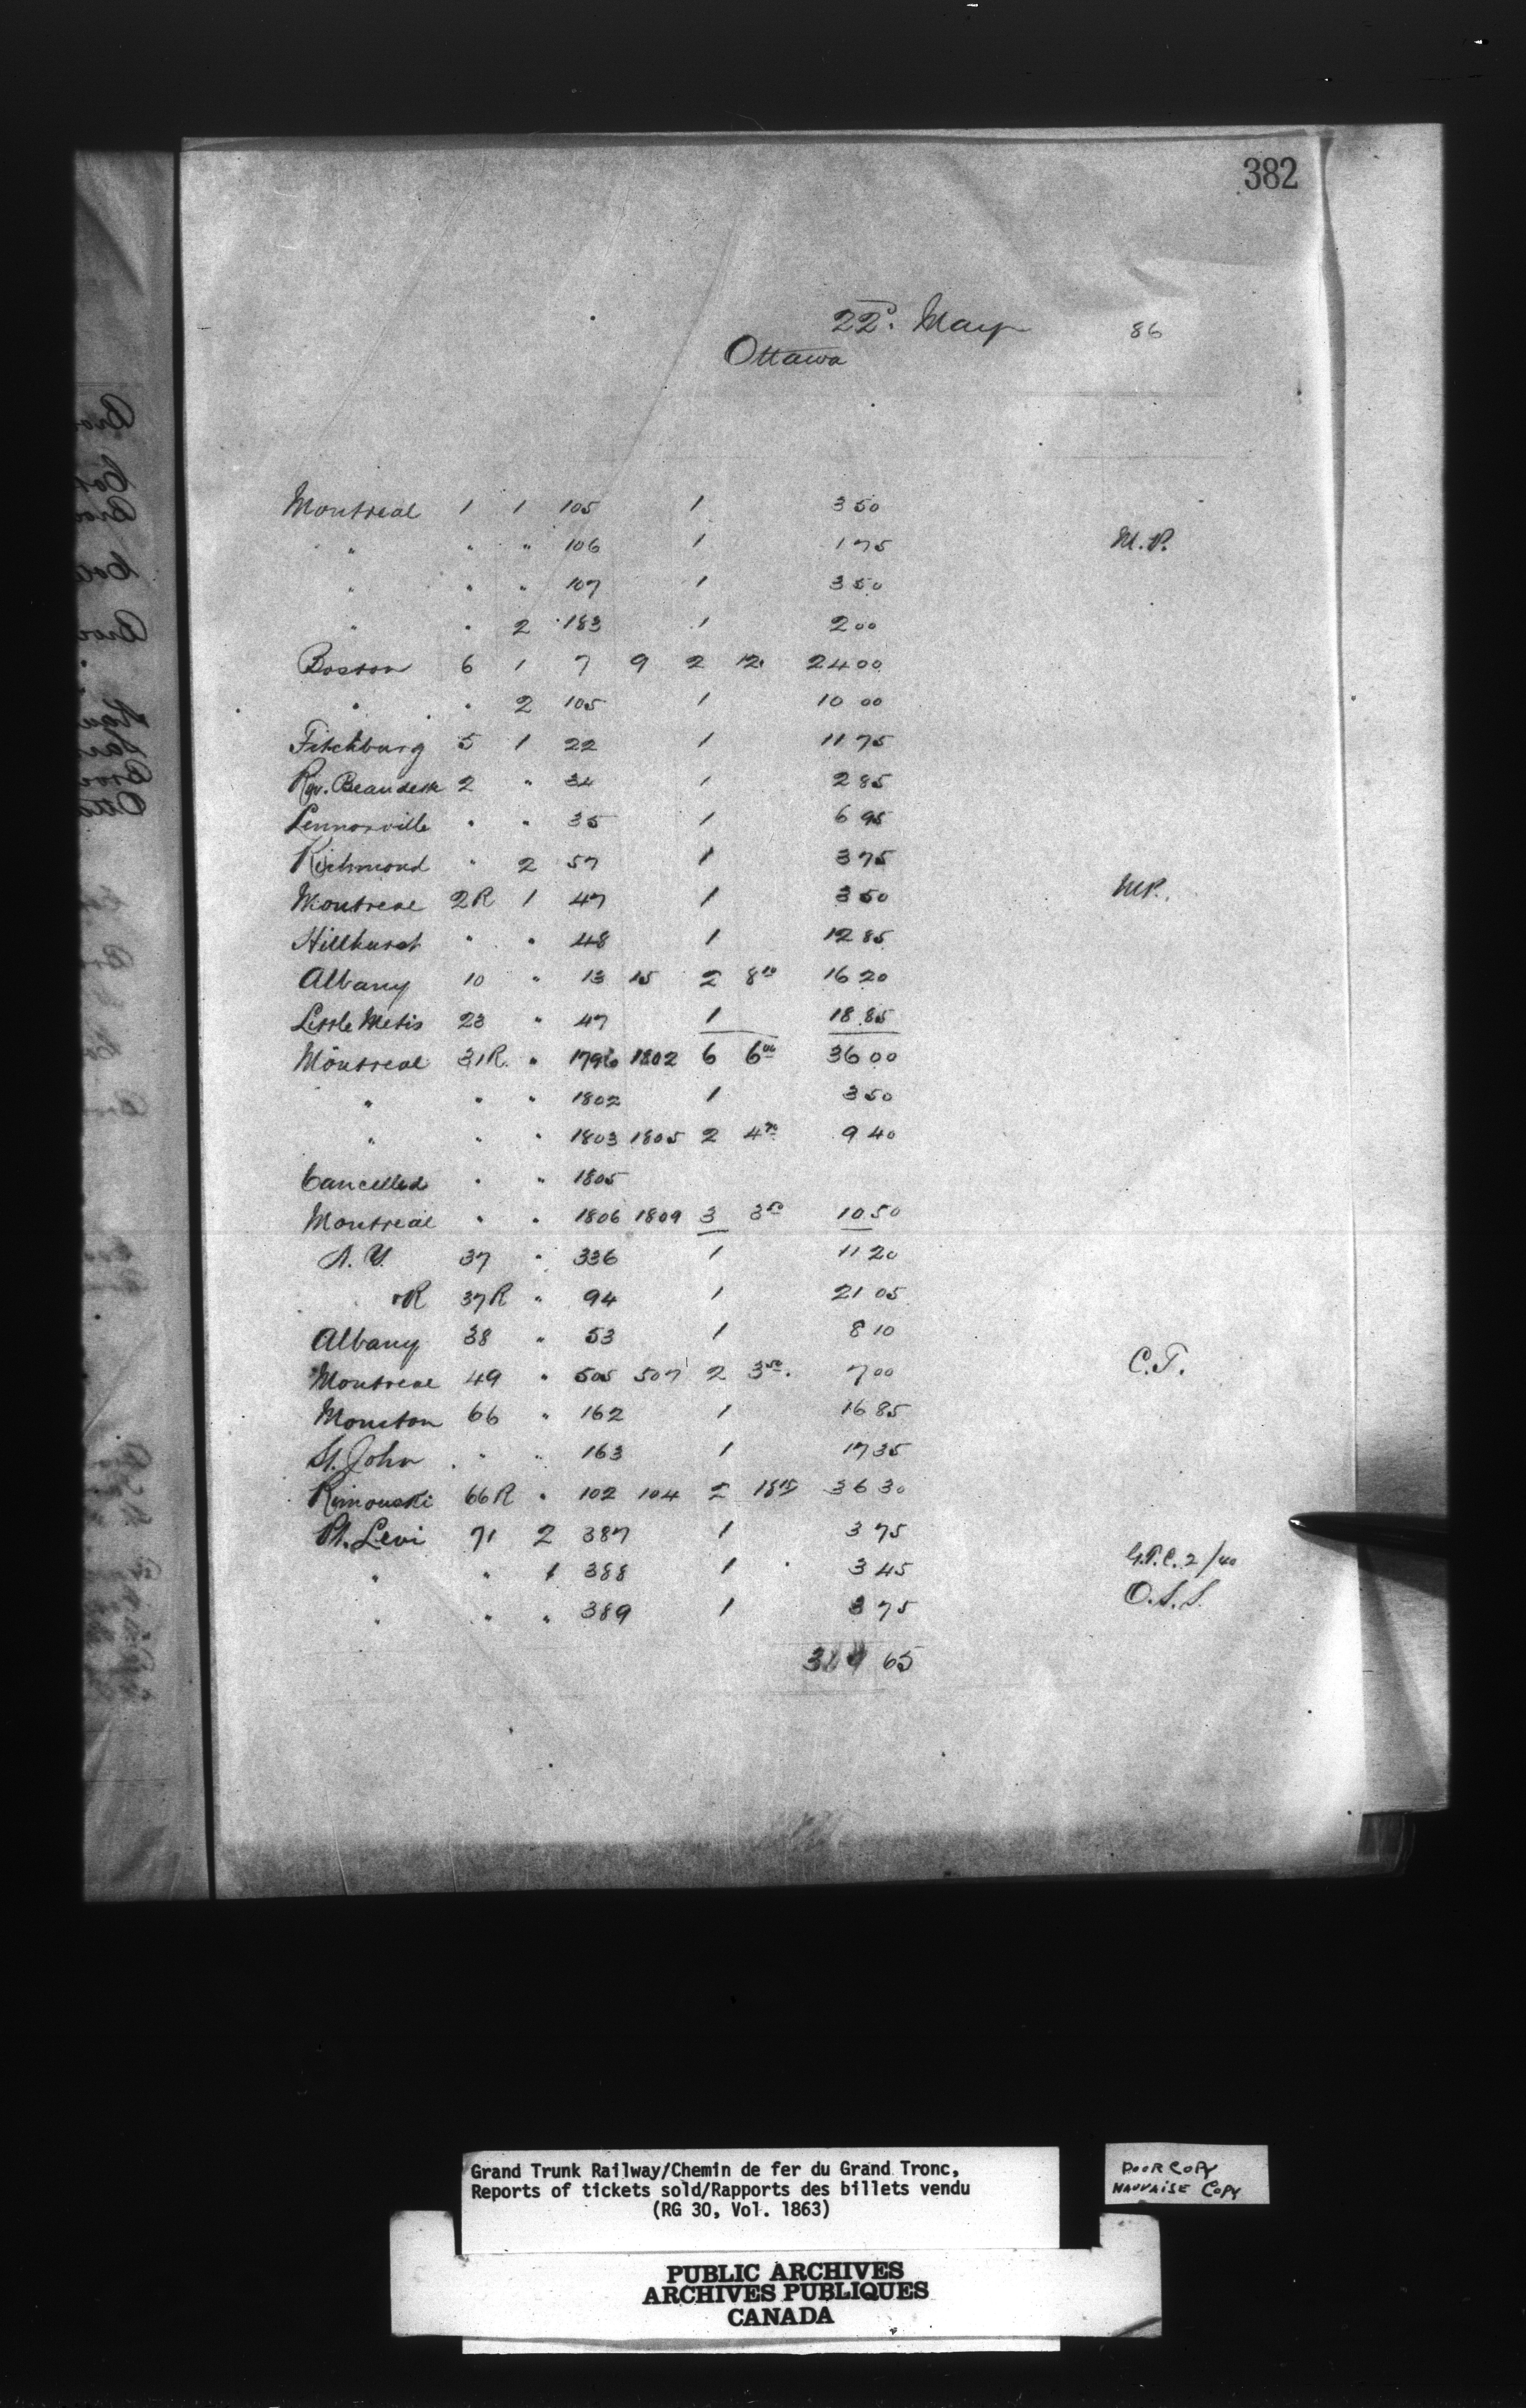 382
22d. May 86
Ottawa
Montreal 1 1 105 1 3 50
" " " 106 1 1 75 M.P.
" " " 107 1 3 50
" " 2 183 1 2 00
Boston 6 1 7 9 2 12. 24 00
" " 2 105 1 10 00
Fitchburg 5 1 22 1 11 75
Riv. Beaudette 2 " 34 1 2 85
Lennoxville " " 35 1 6 95
Richmond " 2 57 1 3 75
Montreal 2R 1 47 1 3 50 MP.
Hillhurst " " 48 1 12 85
Albany 10 " 13 15 2 8 10 16 20
Little Metis 23 " 47 1 18 85
Montreal 31R. " 1796 1802 6 6 00 36 00
" " " 1802 1 3 50
" " " 1803 1805 2 4 70 9 40
Cancelled " " 1805
Montreal " " 1806 1809 3 3 50 10 50
N. Y. 37 " 336 1 11 20
" R 37R " 94 1 21 05
Albany 38 " 53 1 8 10
Montreal 49 " 505 507 2 3 50. 7 00 C.T.
Moncton 66 " 162 1 16 85
St. John " " 163 1 17 35
Rimouski 66R " 102 104 2 18 15 36 30
Pt. Levi 71 2 387 1 3 75
" " 1 388 1 3 45 G.T.C. 2/40
" " " 389 1 3 75 O.S.S.
65
Grand Trunk Railway/Chemin de fer du Grand Tronc,
Reports of tickets sold/Rapports des billets vendu
(RG 30, Vol. 1863)
POOR COPY
MAUVAISE COPY
PUBLIC ARCHIVES
ARCHIVES PUBLIQUES
CANADA